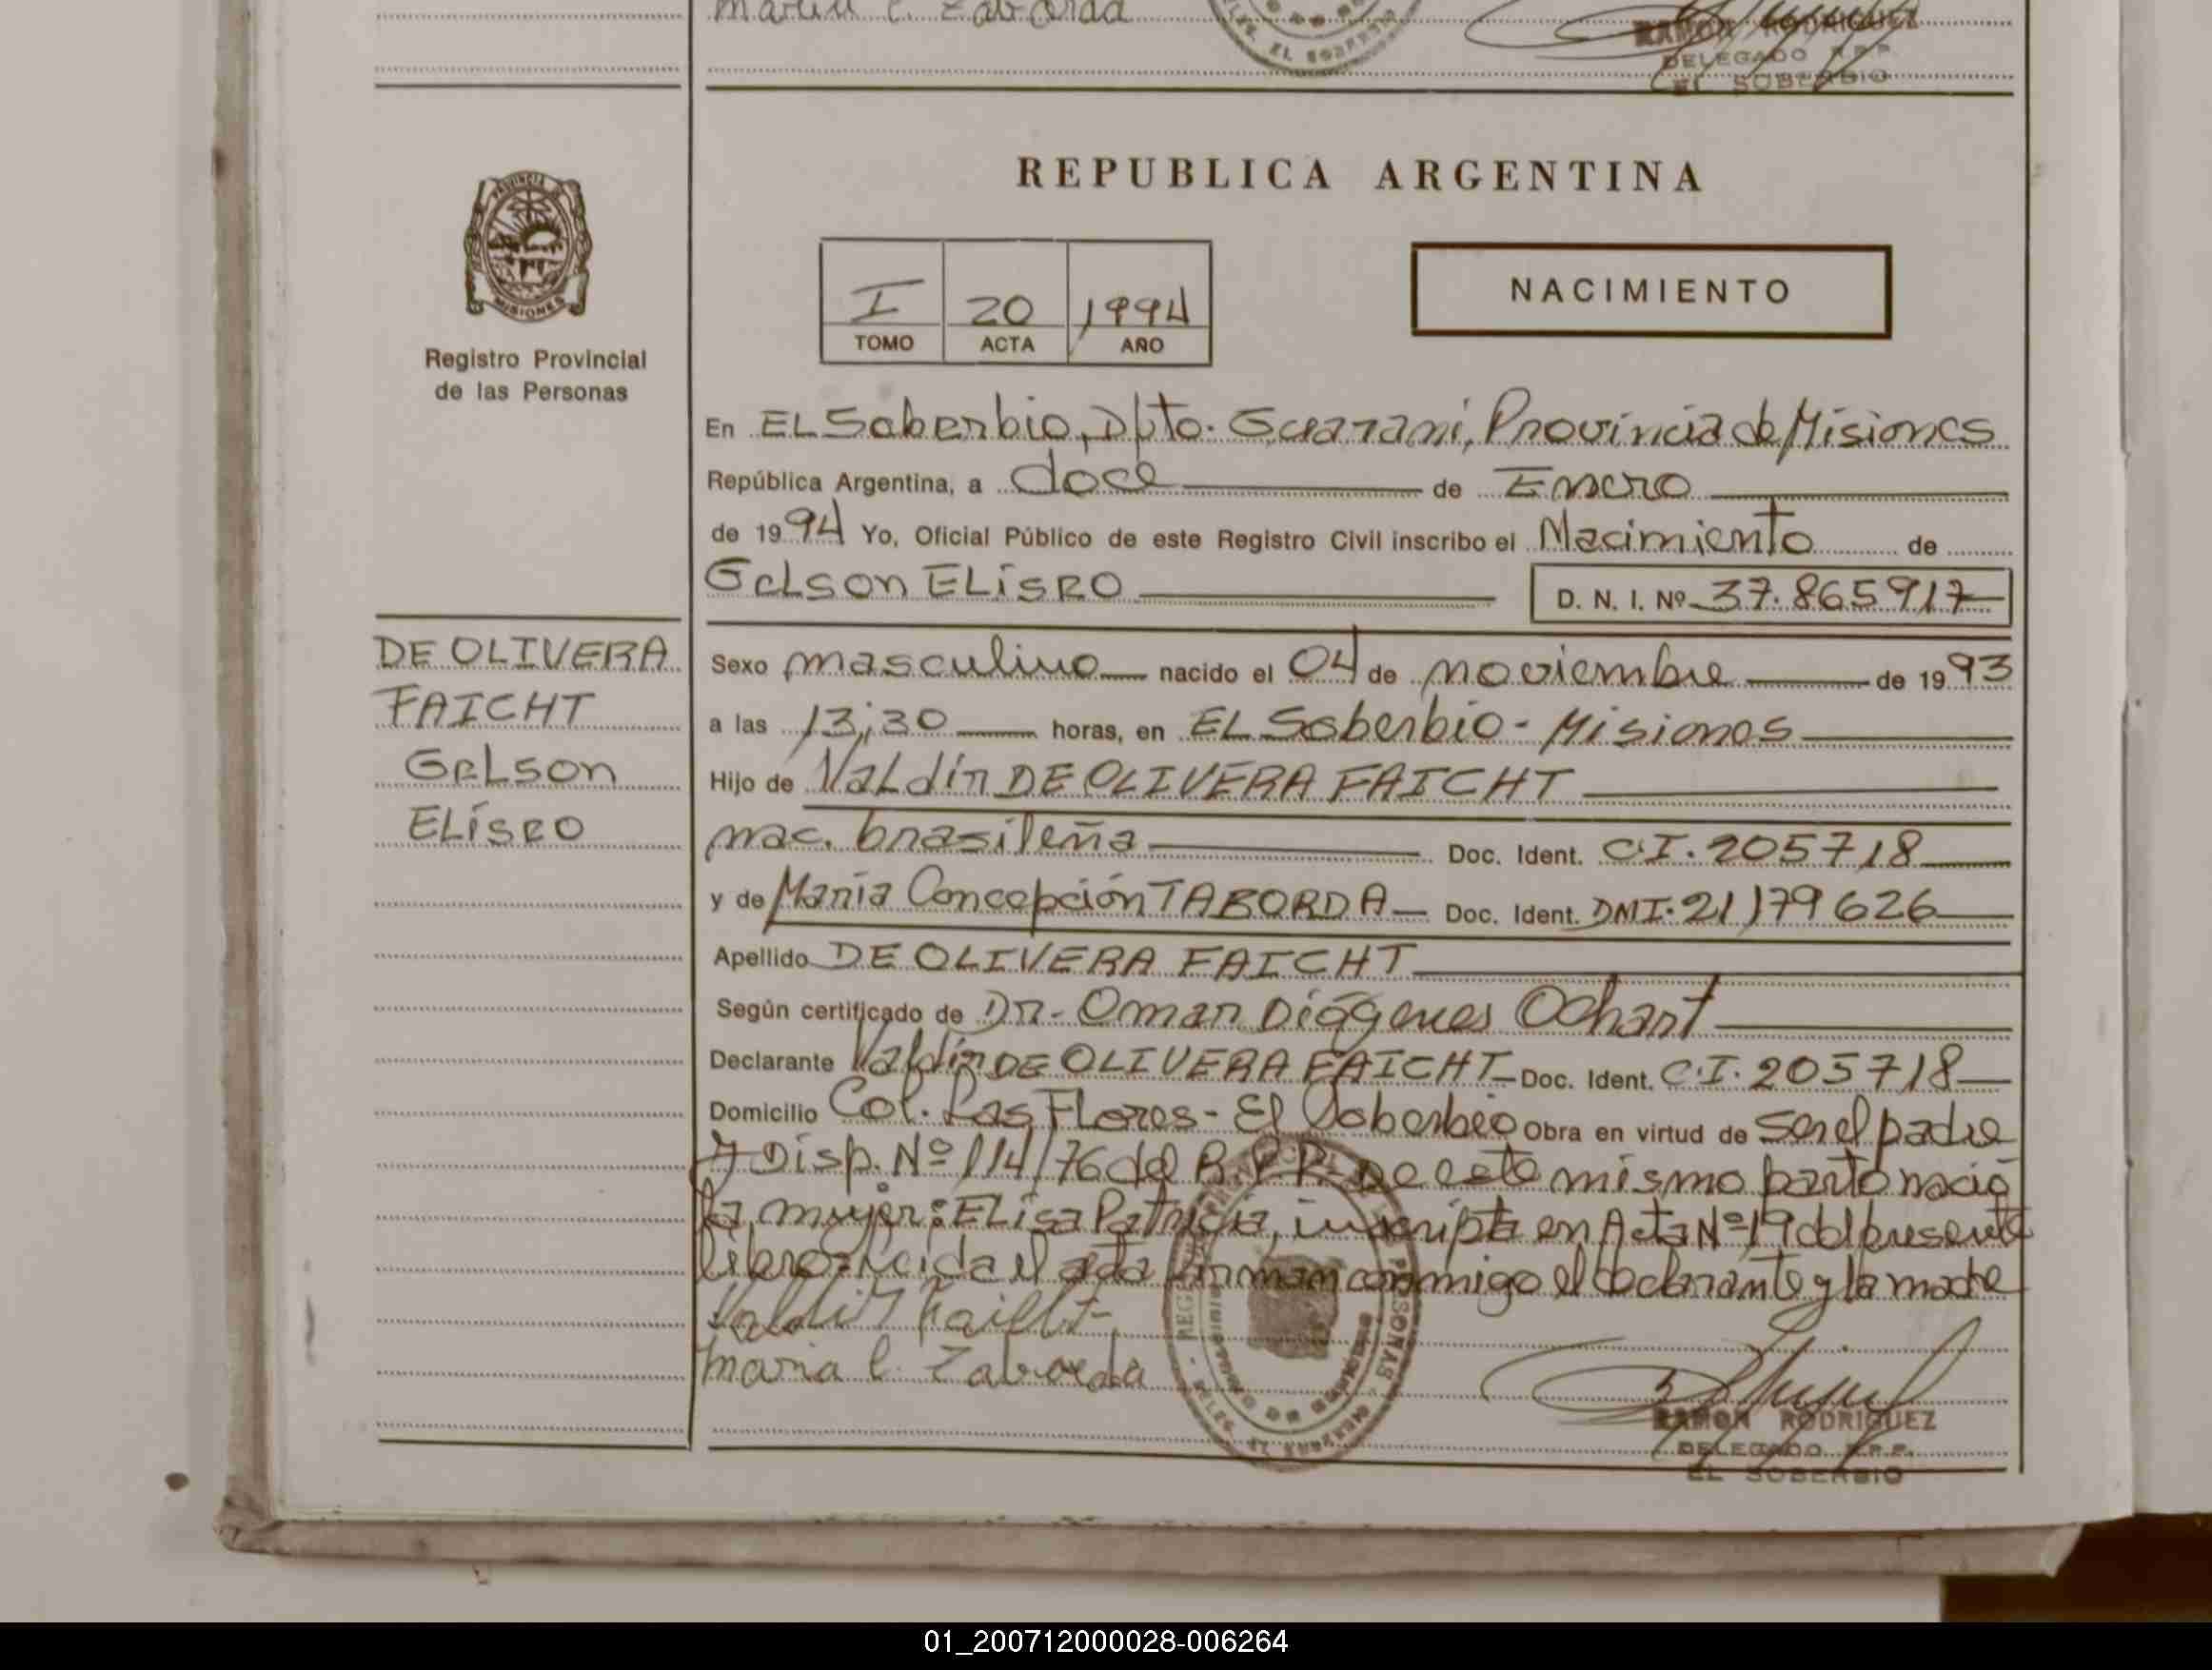 Maria C. Zaborda
EL SOBERBIO
RAMON RODRIGUEZ
DELEGADO R.P.P.
EL SOBERBIO
PROVINCIA DE
MISIONES
Registro Provincial
de las Personas
REPUBLICA ARGENTINA
I 20 1994
TOMO ACTA AÑO
NACIMIENTO
En EL Soberbio, Dpto. Guarani, Provincia de Misiones
República Argentina, a doce de Enero
de 1994 Yo, Oficial Público de este Registro Civil inscribo el Nacimiento de
Gelson ELiseo D. N. I. Nº 37.865917
DE OLIVERA
FAICHT
Gelson
ELíseo
Sexo masculino nacido el 04 de noviembre de 1993
a las 13;30 horas, en EL Soberbio - Misiones
Hijo de Valdir DE OLIVERA FAICHT
nac. brasileña Doc. Ident. C.I. 205718
y de María Concepción TABORDA Doc. Ident. DNI. 21179626
Apellido DE OLIVERA FAICHT
Según certificado de Dr. Omar Diógenes Ochart
Declarante Valdir DE OLIVERA FAICHT Doc. Ident. C.I. 205718
Domicilio Col. Las Flores - El Soberbio Obra en virtud de ser el padre
y Disp. Nº 114/76 del R.P.P. De este mismo parto nació
la mujer: ELisa Patricia, inscripta en Acta Nº 19 del presente
libro. Leida el acta firman conmigo el declarante y la madre
Valdir Faicht
Maria C. Zaborda
PERSONAS
EL SOBERBIO
RAMON RODRIGUEZ
DELEGADO R.P.P.
EL SOBERBIO
01_200712000028-006264